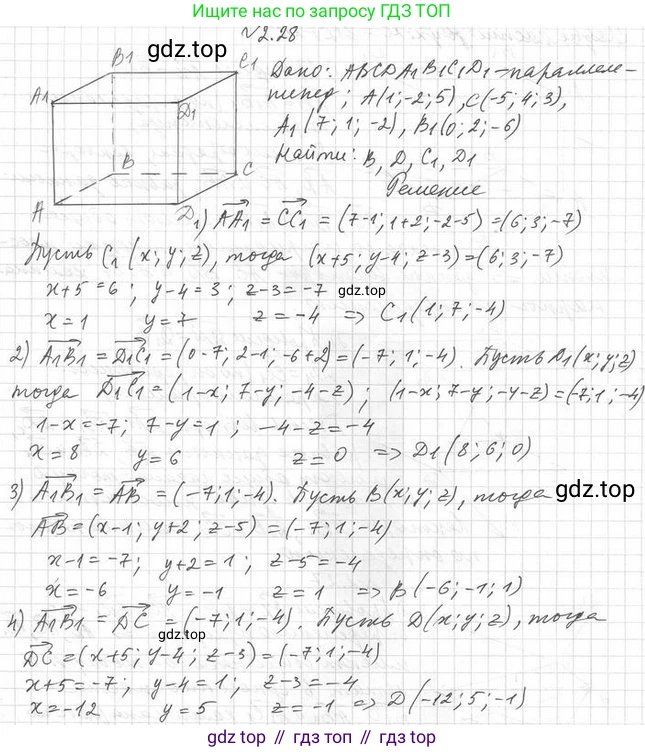 Больше решений по запросу ГДЗ ТОП
№2.28
Дано: ABCDA1B1C1D1-параллеле-
пипед; A(1;-2;5), C(-5;4;3),
A1(7;1;-2), B1(0;2;-6)
Найти: B, D, C1, D1
Решение
B1
C1
A1
D1
B
C
A
D
1) AA1 = CC1 = (7-1; 1+2; -2-5) = (6; 3; -7)
Пусть C1 (x; y; z), тогда (x+5; y-4; z-3)=(6; 3; -7)
x+5=6; y-4=3; z-3=-7
gdz.top
x=1 y=7 z=-4 => C1(1; 7; -4)
2) A1B1 = D1C1 = (0-7; 2-1; -6+2) = (-7; 1; -4). Пусть D1(x; y; z)
тогда D1C1 = (1-x; 7-y; -4-z); (1-x; 7-y; -4-z)=(-7; 1; -4)
1-x=-7; 7-y=1; -4-z=-4
x=8 y=6 z=0 => D1(8; 6; 0)
3) A1B1 = AB = (-7; 1; -4). Пусть B(x; y; z), тогда
gdz.top
AB = (x-1; y+2; z-5) = (-7; 1; -4)
x-1=-7; y+2=1; z-5=-4
x=-6 y=-1 z=1 => B(-6; -1; 1)
4) A1B1 = DC = (-7; 1; -4). Пусть D(x; y; z), тогда
gdz.top
DC = (x+5; y-4; z-3) = (-7; 1; -4)
x+5=-7; y-4=1; z-3=-4
x=-12 y=5 z=-1 => D(-12; 5; -1)
gdz.top // gdz.top // gdz.top